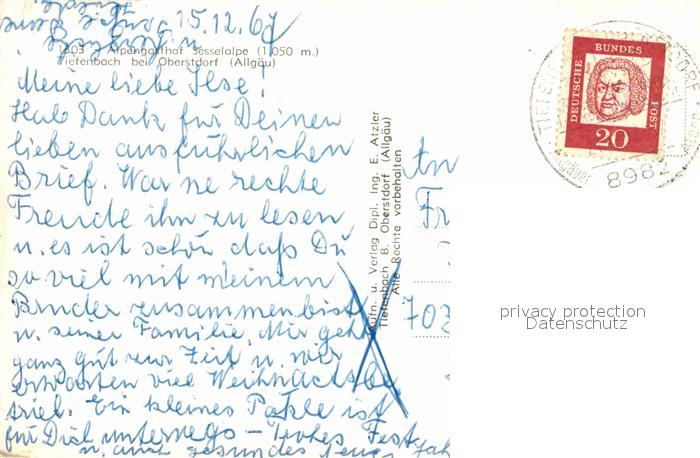 15.12.67
1303 Alpengasthof Sesselalpe (1.050 m.)
Tiefenbach bei Oberstdorf (Allgäu)
Meine liebe Ilse!
Hab Dank für Deinen
lieben ausführlichen
Brief. War ne rechte
Freude ihn zu lesen
u. es ist schön daß Du
so viel mit meinem
Bruder zusammen bist
u. seiner Familie. Mir geht
ganz gut zur Zeit u. wir
erwarten viel Weihnachtsbe
trieb. Ein kleines Pakle ist
für Dich unterwegs – Frohes Fest
u. auch gesundes neues Jahr
Aufn. u. Verlag Dipl. Ing. E. Atzler
Tiefenbach B. Oberstdorf (Allgäu)
Alle Rechte vorbehalten
Fr
703
DEUTSCHE BUNDES POST
20
8982
privacy protection
Datenschutz